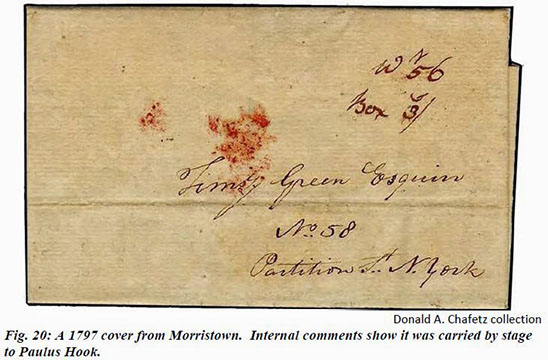 56
Box 3/
Timy Green Esquire
No. 58
Partition St. N. York
Donald A. Chafetz collection
Fig. 20: A 1797 cover from Morristown. Internal comments show it was carried by stage
to Paulus Hook.